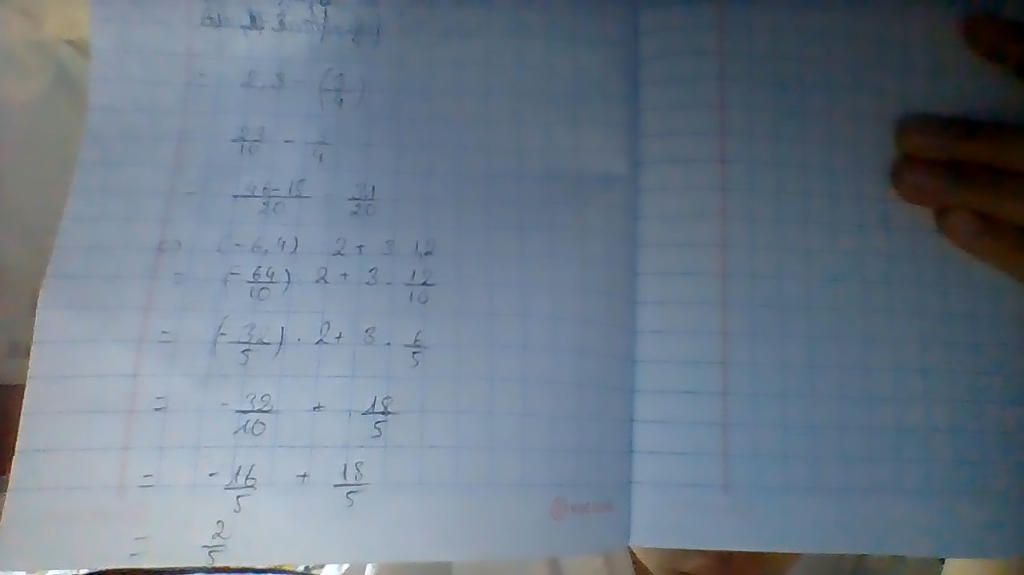 = 2,3 - (3/4)
23/10 - 3/4
= 46-15/20 = 31/20
c) (-6,4) . 2 + 3 . 1,2
= (-64/10) . 2 + 3 . 12/10
= (-32/5) . 2 + 3 . 6/5
= -32/10 + 18/5
= -16/5 + 18/5
= 2/5